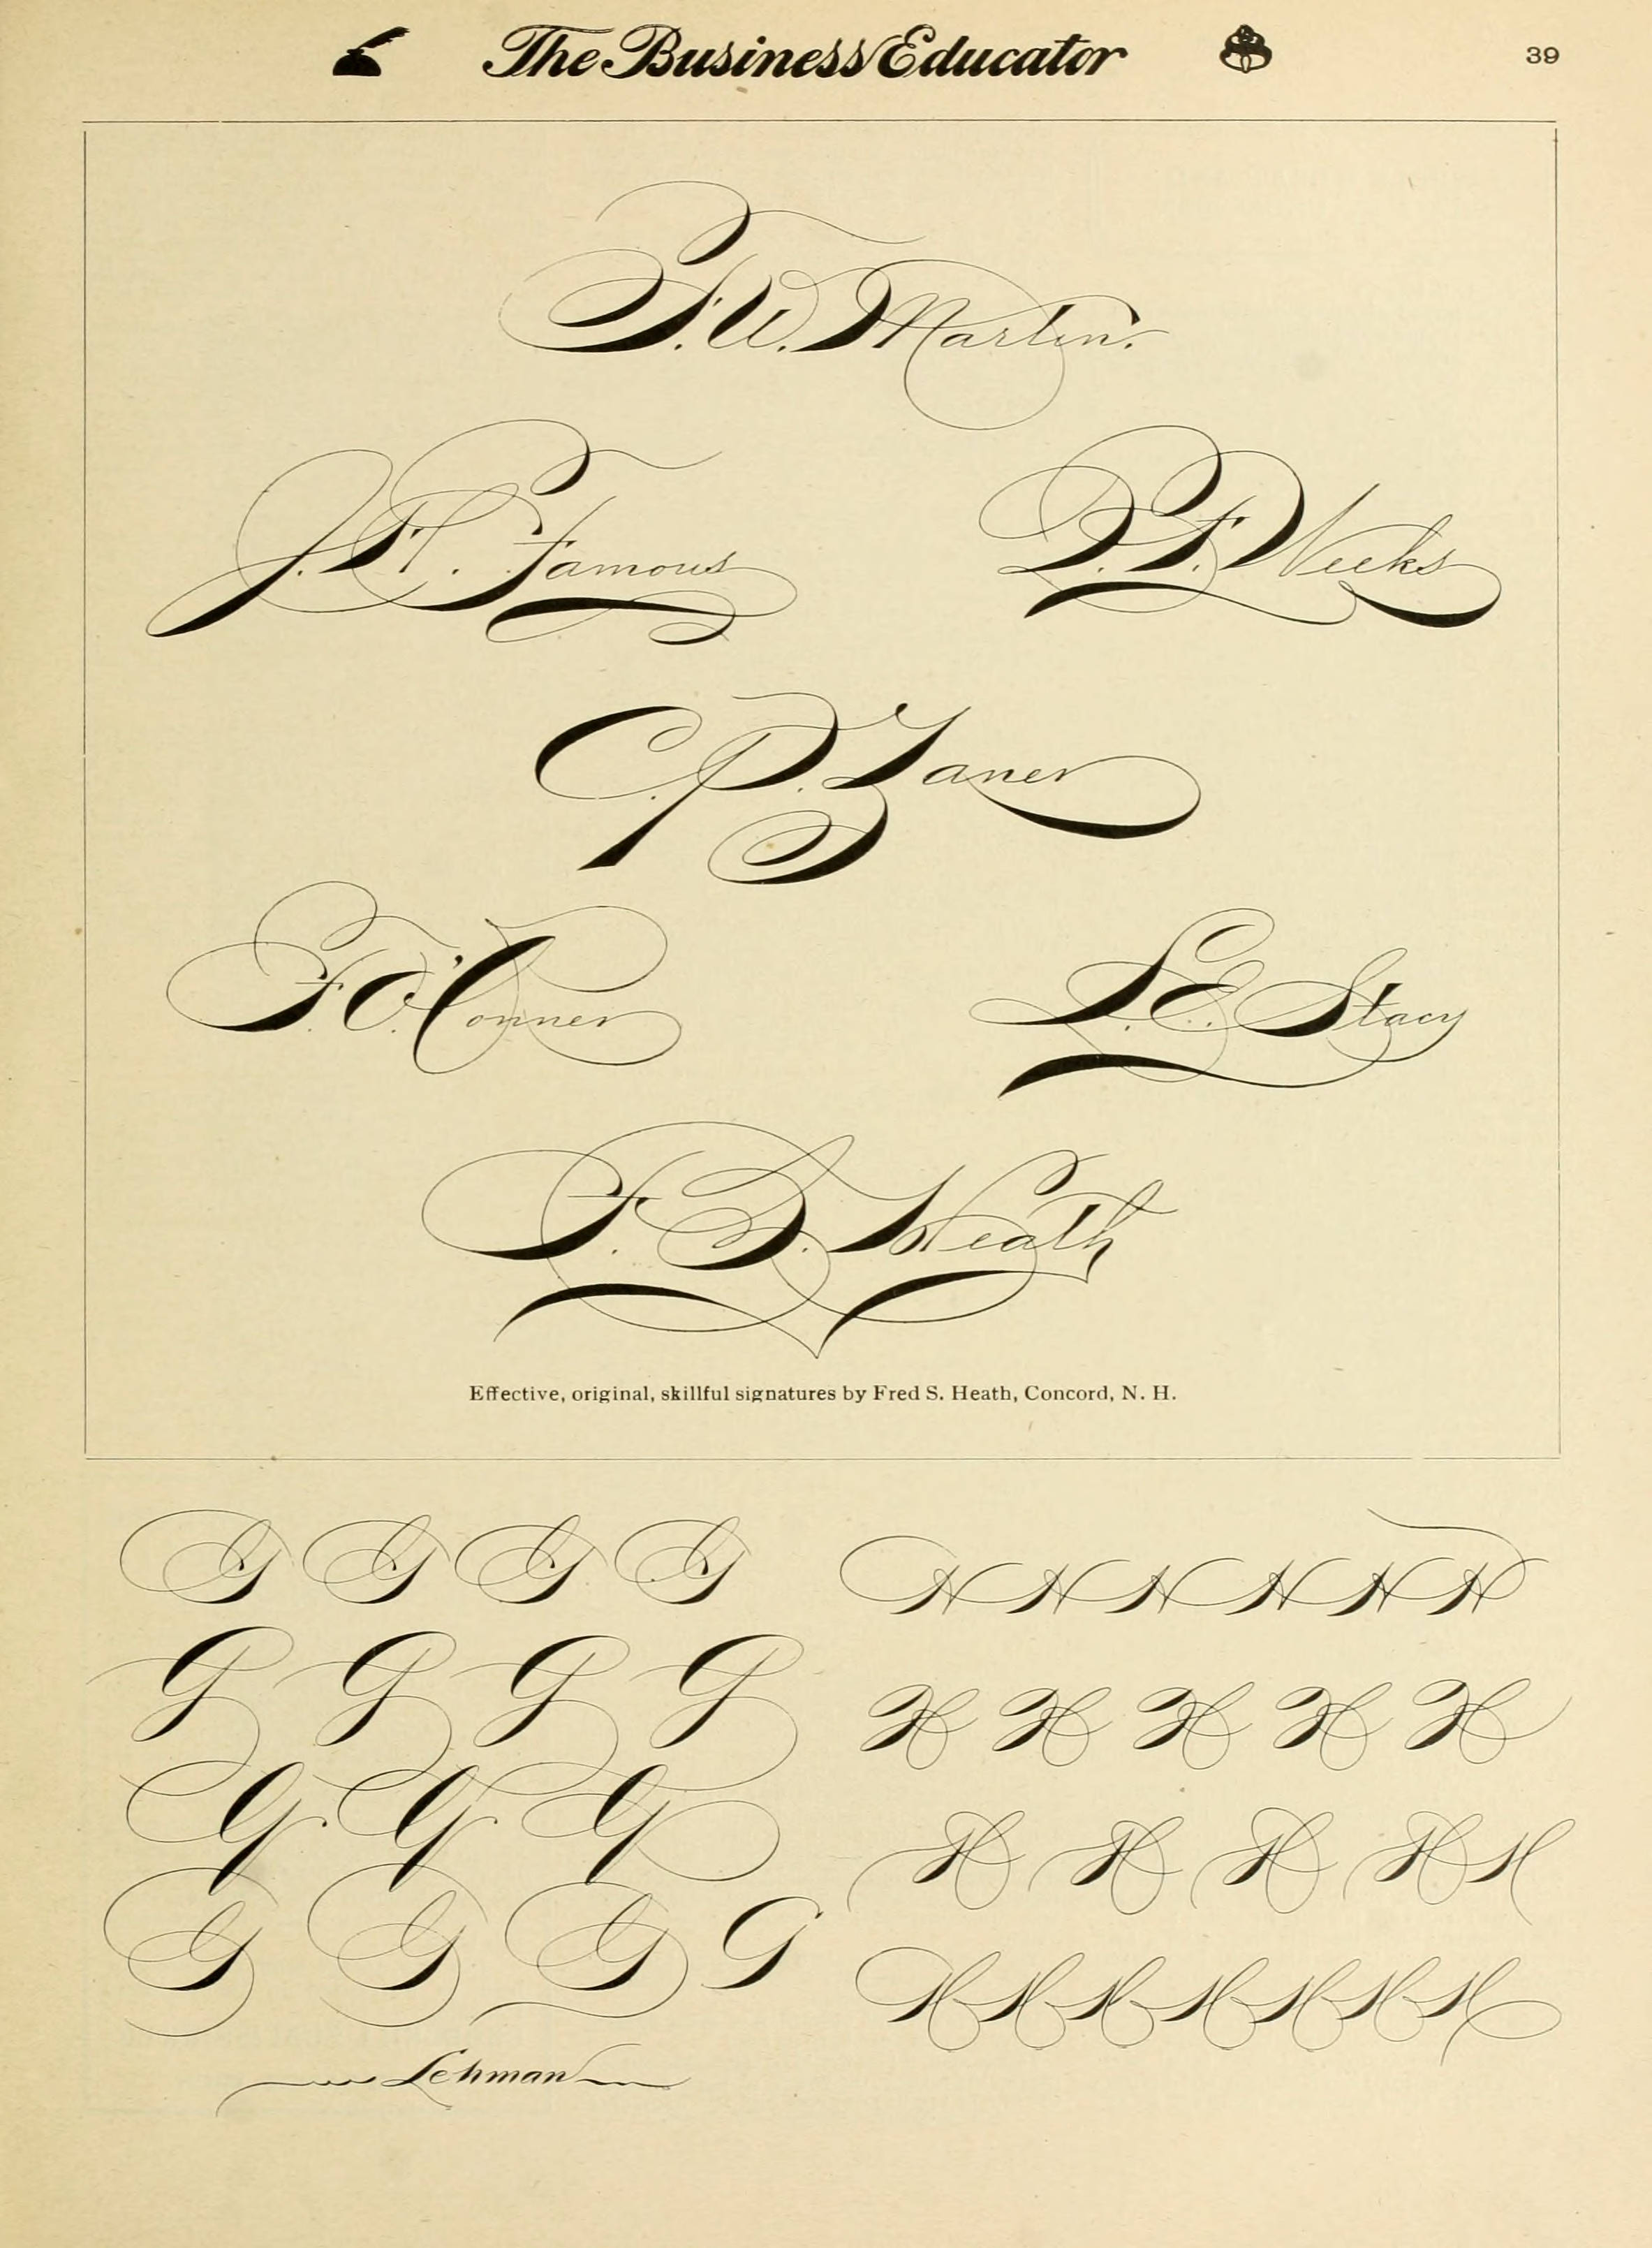 The Business Educator 39
F. W. Martin.
J. F. Famous
D. F. Weeks
C. P. Zaner
F. O. Conner
L. E. Stacy
F. S. Heath
Effective, original, skillful signatures by Fred S. Heath, Concord, N. H.
G G G G
H H H H H H
G G G G
H H H H H
G G G
H H H H H
G G G G
H H H H H H H
Lehman